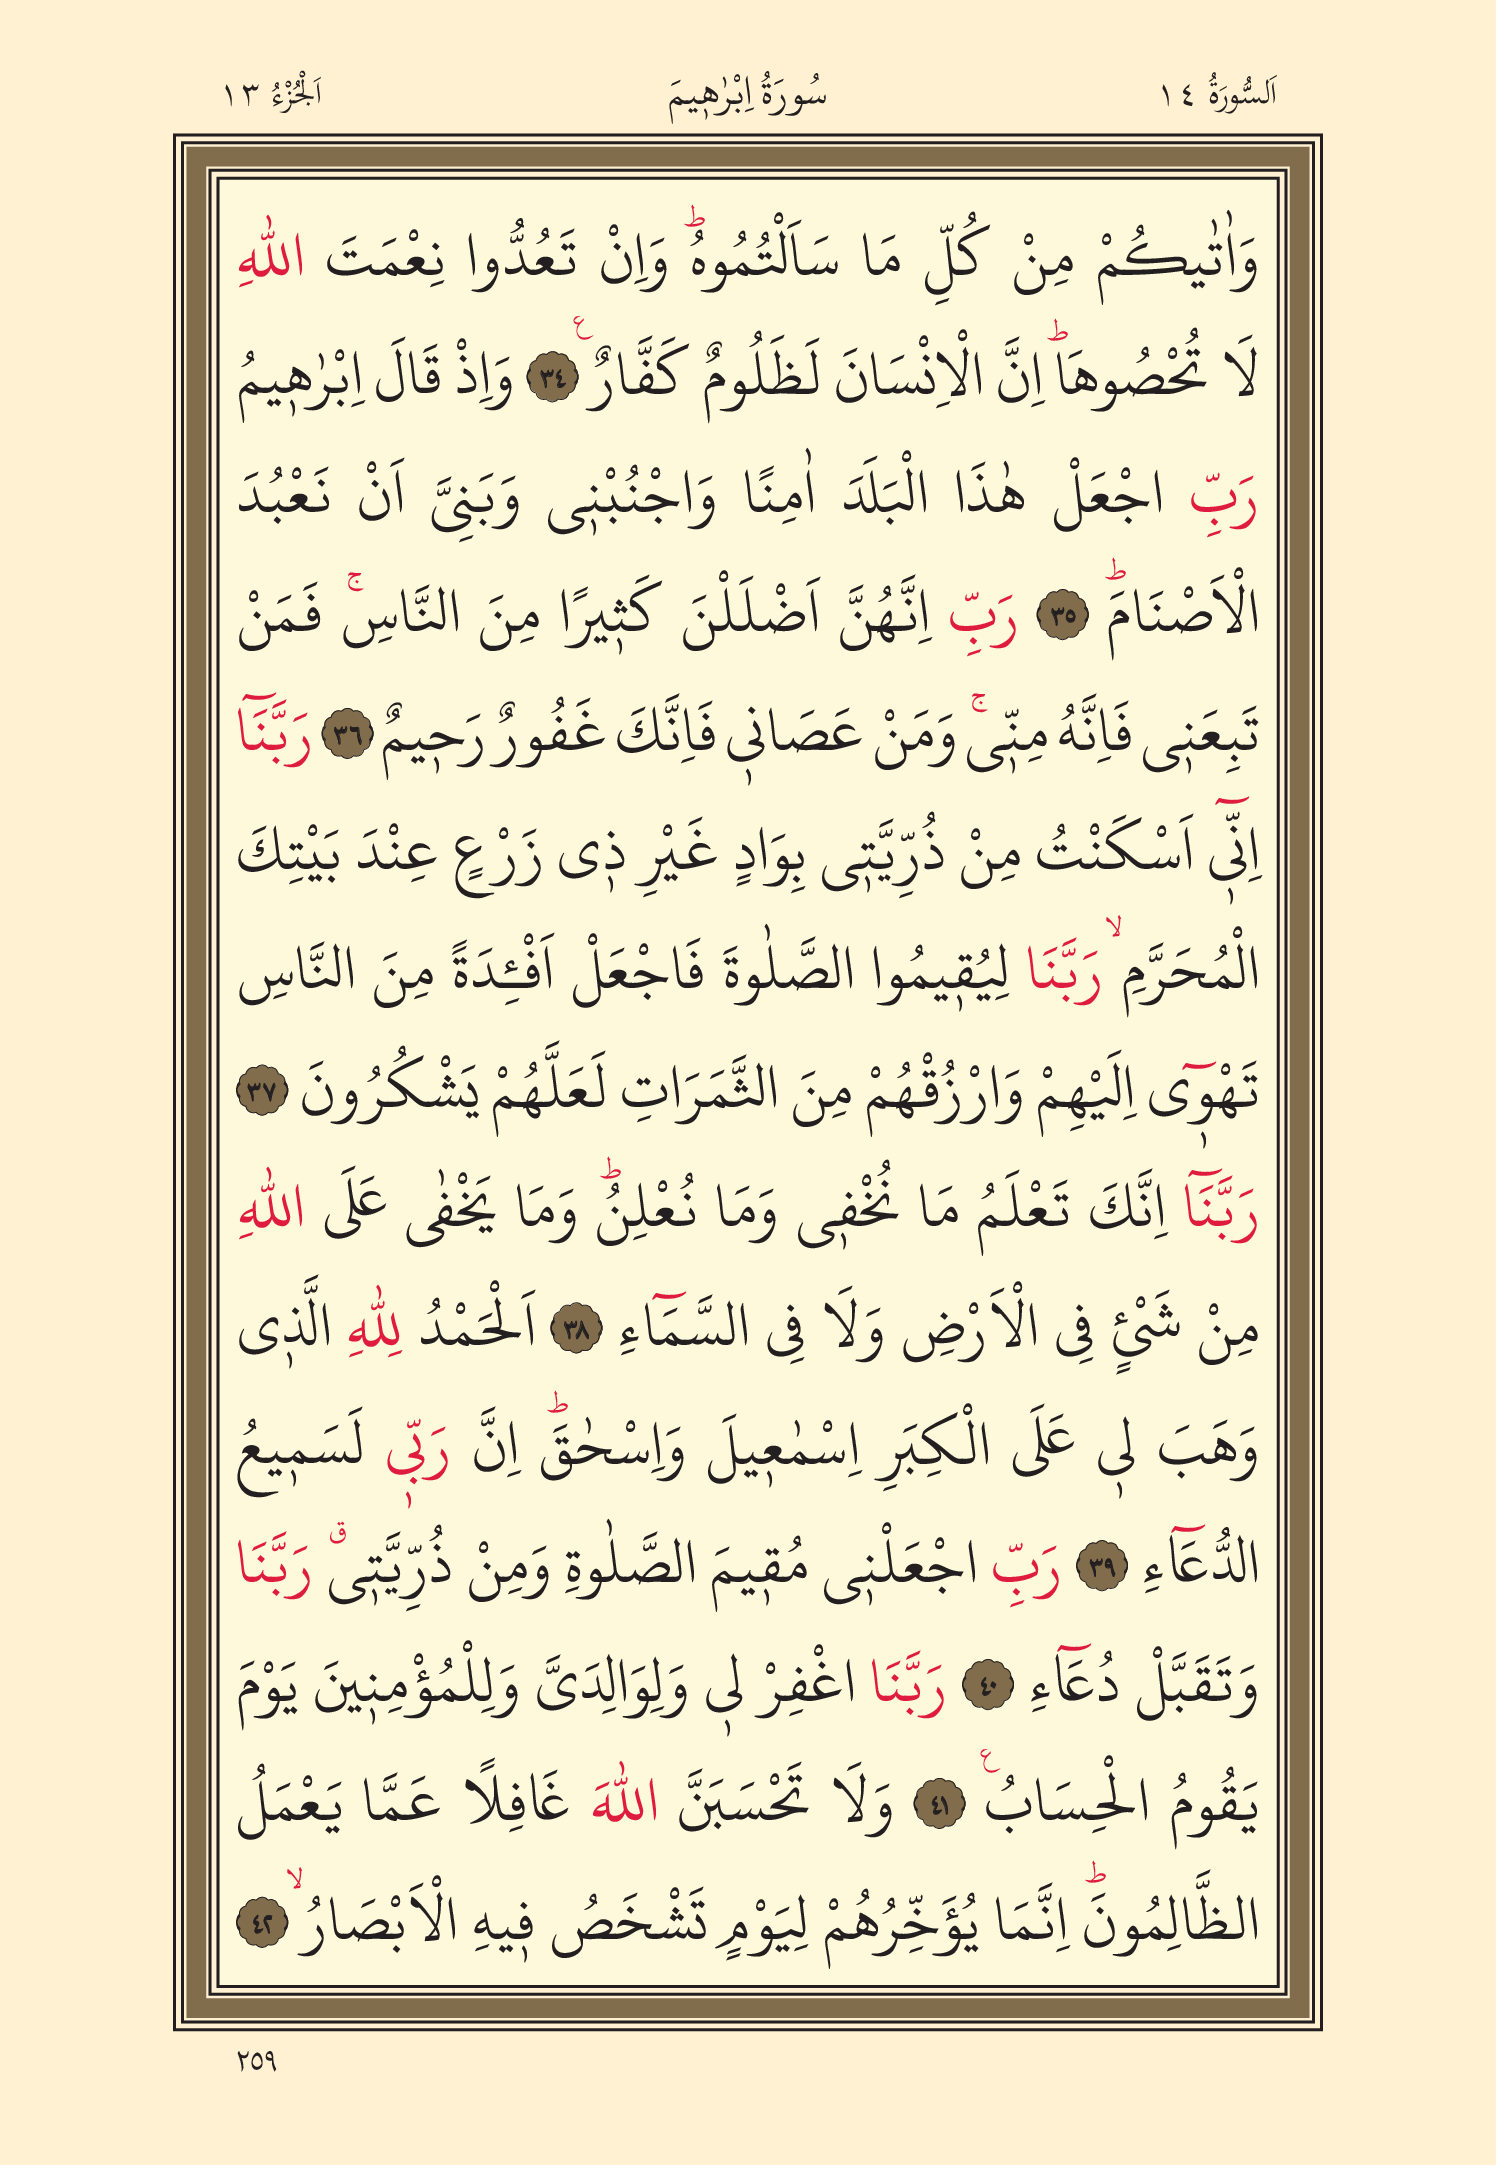 اَلسُّورَةُ ١٤
سُورَةُ اِبْرٰه۪يمَ
اَلْجُزْءُ ١٣
وَاٰتٰيكُمْ مِنْ كُلِّ مَا سَاَلْتُمُوهُۜ وَاِنْ تَعُدُّوا نِعْمَتَ اللّٰهِ
لَا تُحْصُوهَاۜ اِنَّ الْاِنْسَانَ لَظَلُومٌ كَفَّارٌ۟ ﴿٣٤﴾ وَاِذْ قَالَ اِبْرٰه۪يمُ
رَبِّ اجْعَلْ هٰذَا الْبَلَدَ اٰمِنًا وَاجْنُبْن۪ى وَبَنِىَّ اَنْ نَعْبُدَ
الْاَصْنَامَۜ ﴿٣٥﴾ رَبِّ اِنَّهُنَّ اَضْلَلْنَ كَث۪يرًا مِنَ النَّاسِۚ فَمَنْ
تَبِعَن۪ى فَاِنَّهُ مِنّ۪ىۚ وَمَنْ عَصَان۪ى فَاِنَّكَ غَفُورٌ رَح۪يمٌ ﴿٣٦﴾ رَبَّنَٓا
اِنّ۪ٓى اَسْكَنْتُ مِنْ ذُرِّيَّت۪ى بِوَادٍ غَيْرِ ذ۪ى زَرْعٍ عِنْدَ بَيْتِكَ
الْمُحَرَّمِۙ رَبَّنَا لِيُق۪يمُوا الصَّلٰوةَ فَاجْعَلْ اَفْـِٔدَةً مِنَ النَّاسِ
تَهْو۪ٓى اِلَيْهِمْ وَارْزُقْهُمْ مِنَ الثَّمَرَاتِ لَعَلَّهُمْ يَشْكُرُونَ ﴿٣٧﴾
رَبَّنَٓا اِنَّكَ تَعْلَمُ مَا نُخْف۪ى وَمَا نُعْلِنُۜ وَمَا يَخْفٰى عَلَى اللّٰهِ
مِنْ شَىْءٍ فِى الْاَرْضِ وَلَا فِى السَّمَٓاءِ ﴿٣٨﴾ اَلْحَمْدُ لِلّٰهِ الَّذ۪ى
وَهَبَ ل۪ى عَلَى الْكِبَرِ اِسْمٰع۪يلَ وَاِسْحٰقَۜ اِنَّ رَبّ۪ى لَسَم۪يعُ
الدُّعَٓاءِ ﴿٣٩﴾ رَبِّ اجْعَلْن۪ى مُق۪يمَ الصَّلٰوةِ وَمِنْ ذُرِّيَّت۪ىۗ رَبَّنَا
وَتَقَبَّلْ دُعَٓاءِ ﴿٤٠﴾ رَبَّنَا اغْفِرْ ل۪ى وَلِوَالِدَىَّ وَلِلْمُؤْمِن۪ينَ يَوْمَ
يَقُومُ الْحِسَابُ۟ ﴿٤١﴾ وَلَا تَحْسَبَنَّ اللّٰهَ غَافِلًا عَمَّا يَعْمَلُ
الظَّالِمُونَۜ اِنَّمَا يُؤَخِّرُهُمْ لِيَوْمٍ تَشْخَصُ ف۪يهِ الْاَبْصَارُۙ ﴿٤٢﴾
٢٥٩